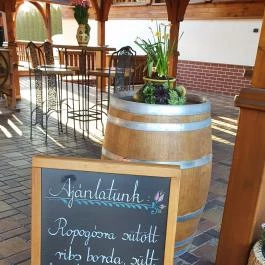 Ajánlatunk:
Ropogósra sütött
ribs borda, sült